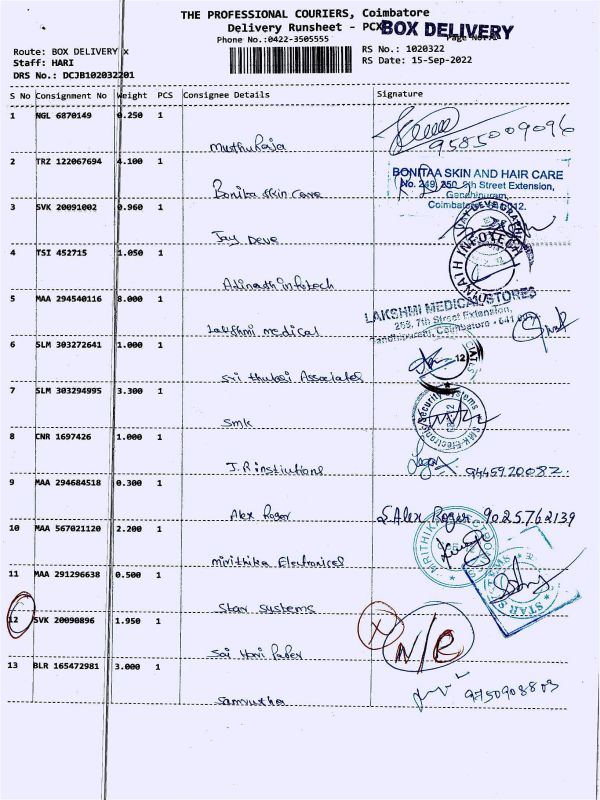 THE PROFESSIONAL COURIERS, Coimbatore
Delivery Runsheet - PCX
BOX DELIVERY
Phone No.:0422-3505555
Page No:
Route: BOX DELIVERY x
RS No.: 1020322
Staff: HARI
RS Date: 15-Sep-2022
DRS No.: DCJB102032201
S No Consignment No Weight PCS Consignee Details Signature
1 NGL 6870149 0.250 1
Muthuraja
9585009096
2 TRZ 122067694 4.100 1
Bonita skin care
BONITAA SKIN AND HAIR CARE
No. 249, 250, 8th Street Extension,
Gandhipuram,
Coimbatore - 12.
3 SVK 20091002 0.960 1
Jay Deve
4 TSI 452715 1.050 1
Adinath infotech
INFOTECH
5 MAA 294540116 8.000 1
Lakshmi medical
LAKSHMI MEDICAL STORES
253, 7th Street Extension,
Gandhipuram, Coimbatore - 641
6 SLM 303272641 1.000 1
Sri thulasi Associates
12
7 SLM 303294995 3.300 1
SMK
SMK-Electronic Security Systems
8 CNR 1697426 1.000 1
J.R instiutions
9445920082.
9 MAA 294684518 0.300 1
Alex Roger
S Alex Roger 9025762139
10 MAA 567021120 2.200 1
Mirithika Electronices
11 MAA 291296638 0.500 1
Star Systems
STAR
12 SVK 20090896 1.950 1
Sai Hari Paper
X N/R
13 BLR 165472981 3.000 1
Samyutha
9750908803